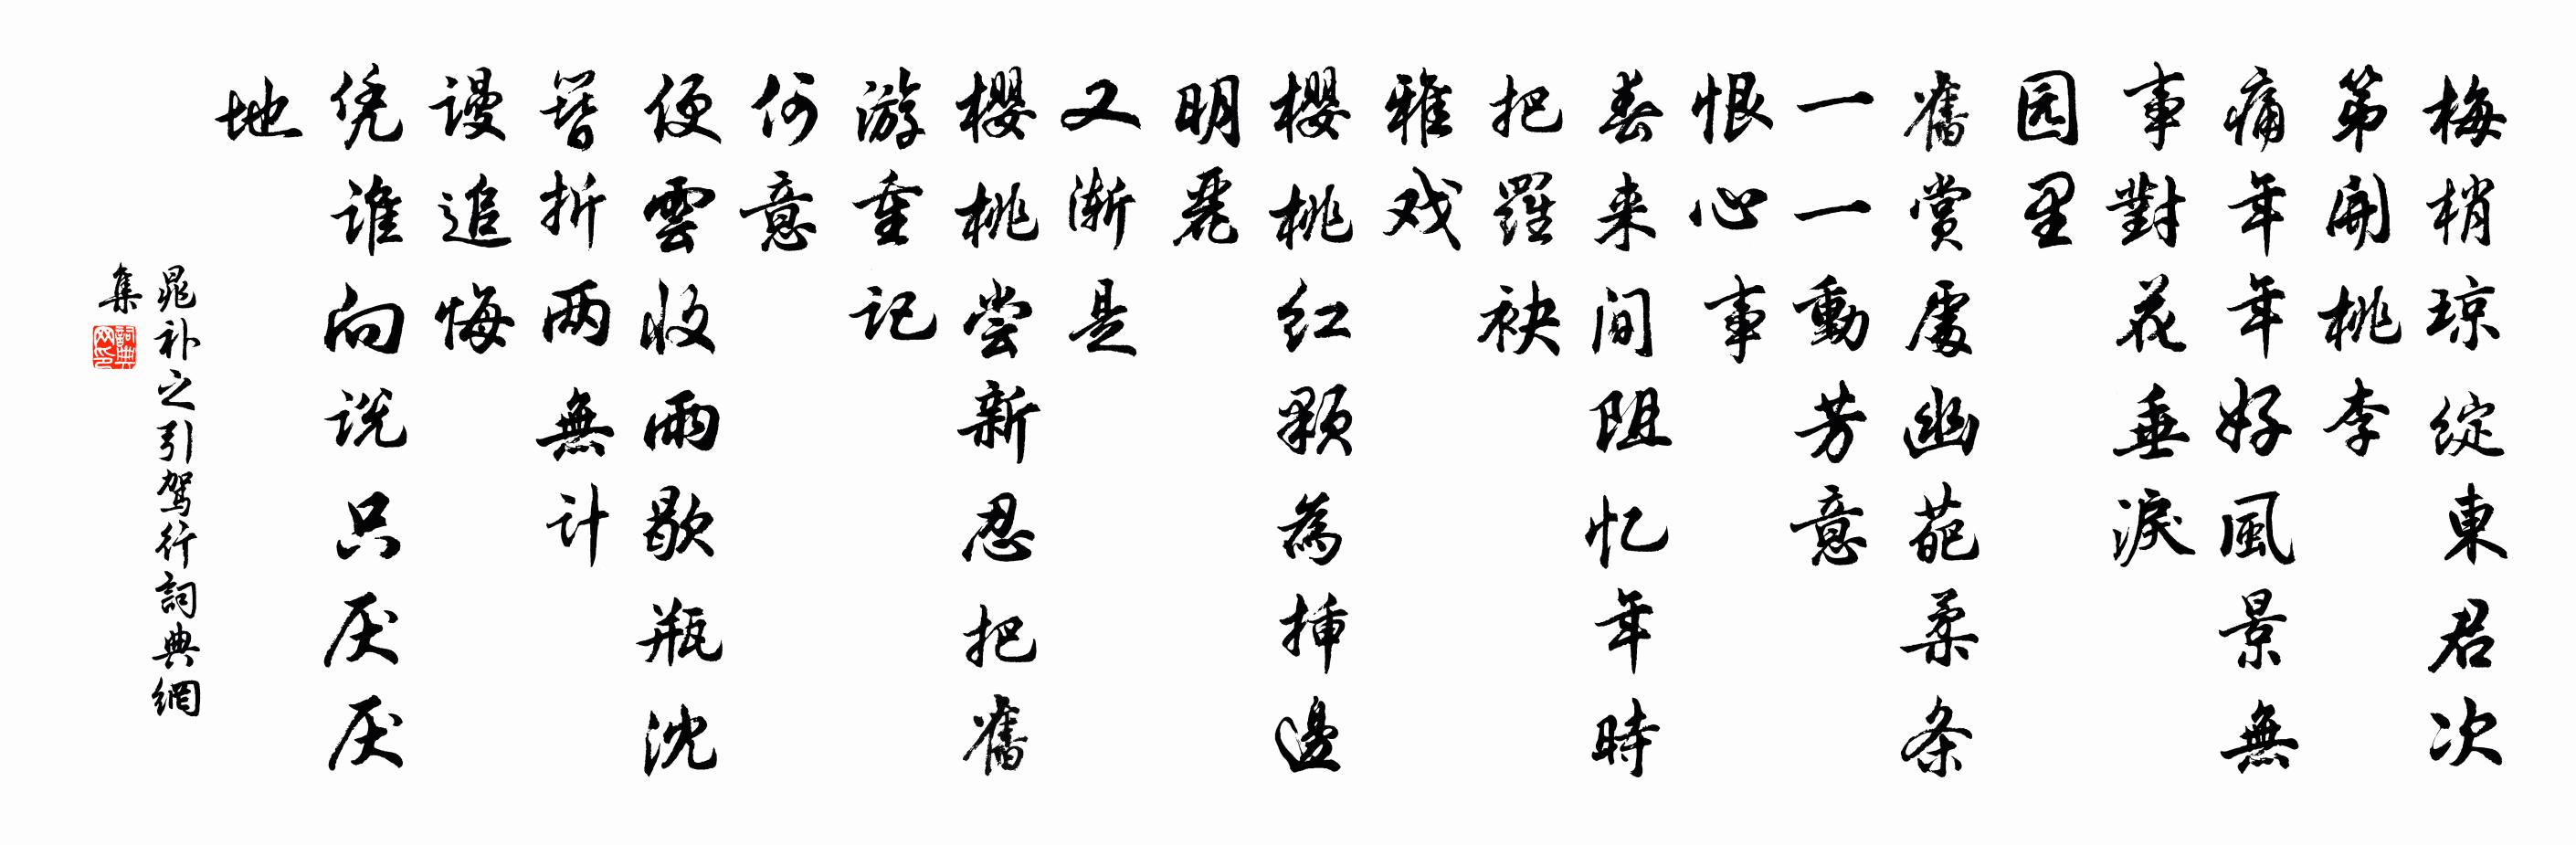 梅梢琼绽東君次
第開桃李
痛年年好風景無
事對花垂淚
园里
舊賞處幽葩柔条
一一動芳意
恨心事
春来间阻忆年時
把羅袂
雅戏
櫻桃红颗為插邊
明麗
又渐是
櫻桃尝新忍把舊
游重记
何意
便雲收雨歇瓶沈
簪折两無计
谩追悔
凭谁向说只厌厌
地
晁补之引驾行詞典網
集
詞典网印